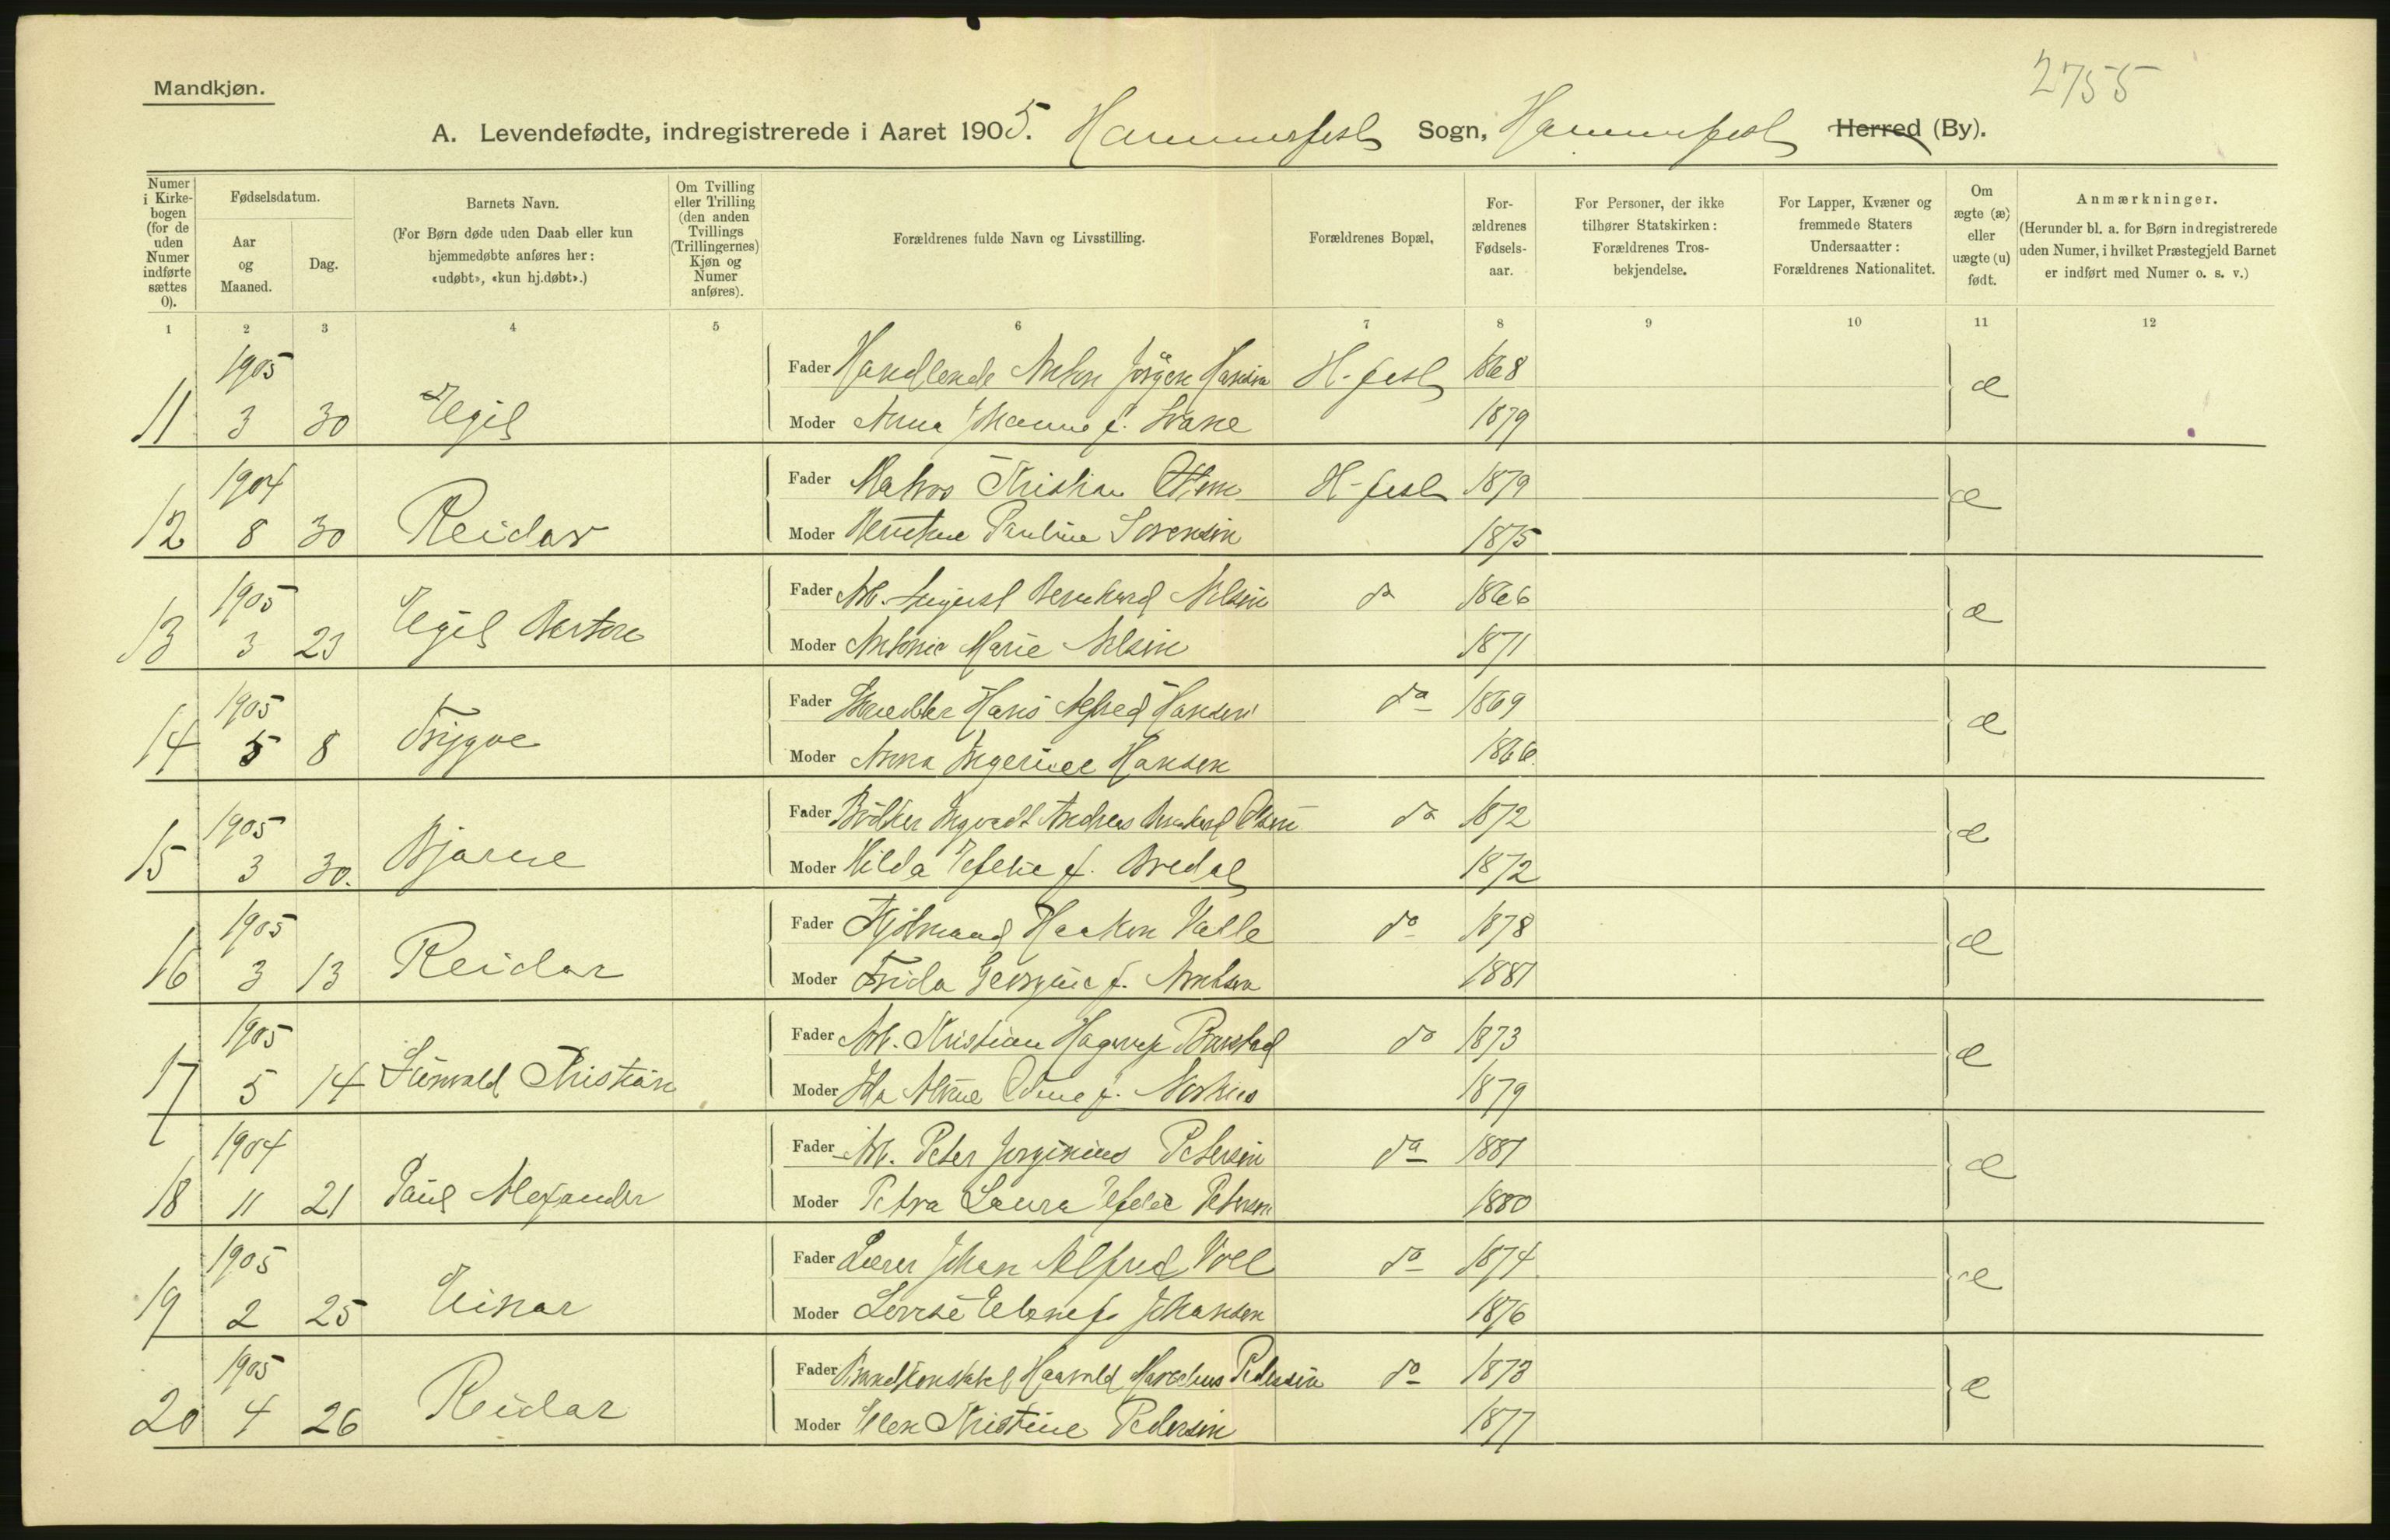 2755
Mandkjøn.
A. Levendefødte, indregistrerede i Aaret 1905. Hammerfest Sogn, Hammerfest Herred (By).
Numer i Kirkebogen (for de uden Numer indførte sættes 0).
Fødselsdatum.
Aar og Maaned.
Dag.
Barnets Navn.
(For Børn døde uden Daab eller kun hjemmedøbte anføres her: «udøbt», «kun hj.døbt».)
Om Tvilling eller Trilling (den anden Tvillings (Trillingernes) Kjøn og Numer anføres).
Forældrenes fulde Navn og Livsstilling.
Forældrenes Bopæl.
Forældrenes Fødselsaar.
For Personer, der ikke tilhører Statskirken: Forældrenes Trosbekjendelse.
For Lapper, Kvæner og fremmede Staters Undersaatter: Forældrenes Nationalitet.
Om ægte (æ) eller uægte (u) født.
Anmærkninger.
(Herunder bl. a. for Børn indregistrerede uden Numer, i hvilket Præstegjeld Barnet er indført med Numer o. s. v.)
1 2 3 4 5 6 7 8 9 10 11 12
1905 Fader Handlende Anton Jørgen Hansen H-fest 1868 æ
11 3 30 Egil Moder Anna Johanne f. Svane 1879
1904 Fader Matros Kristian Olsen H-fest 1879 æ
12 8 30 Reidar Moder Pauline Sorensen 1875
1905 Fader Arb. August Bernhard Nilsen do 1866 æ
13 3 23 Egil Moder Antonie Marie Nilsen 1871
1905 Fader Hans Alfred Hansen do 1869 æ
14 5 8 Trygve Moder Anna Ingerine Hansen 1866.
1905 Fader Bödker Ingvald Andreas Bernhard Olsen do 1872 æ
15 3 30. Bjarne Moder Hilda Efelie f. Bredal 1872
1905 Fader Haakon Valle do 1878 æ
16 3 13 Reidar Moder Frida Georgine f. 1881
1905 Fader Arb. Kristian Hagerup do 1873 æ
17 5 14 Kristian Moder f. 1879
1904 Fader Arb. Peter Jorginius Petersen do 1881 æ
18 11 21 Paul Alexander Moder Petra Laura Efelie Petersen 1880
1905 Fader Lærer Johan Alfred Voll do 1874 æ
19 2 25 Einar Moder Lovise f. Johansen 1876
1905 Fader Brandkonstabel Haavald Marelius Pedersen do 1873 æ
20 4 26 Reidar Moder Elen Kristine Pedersen 1877